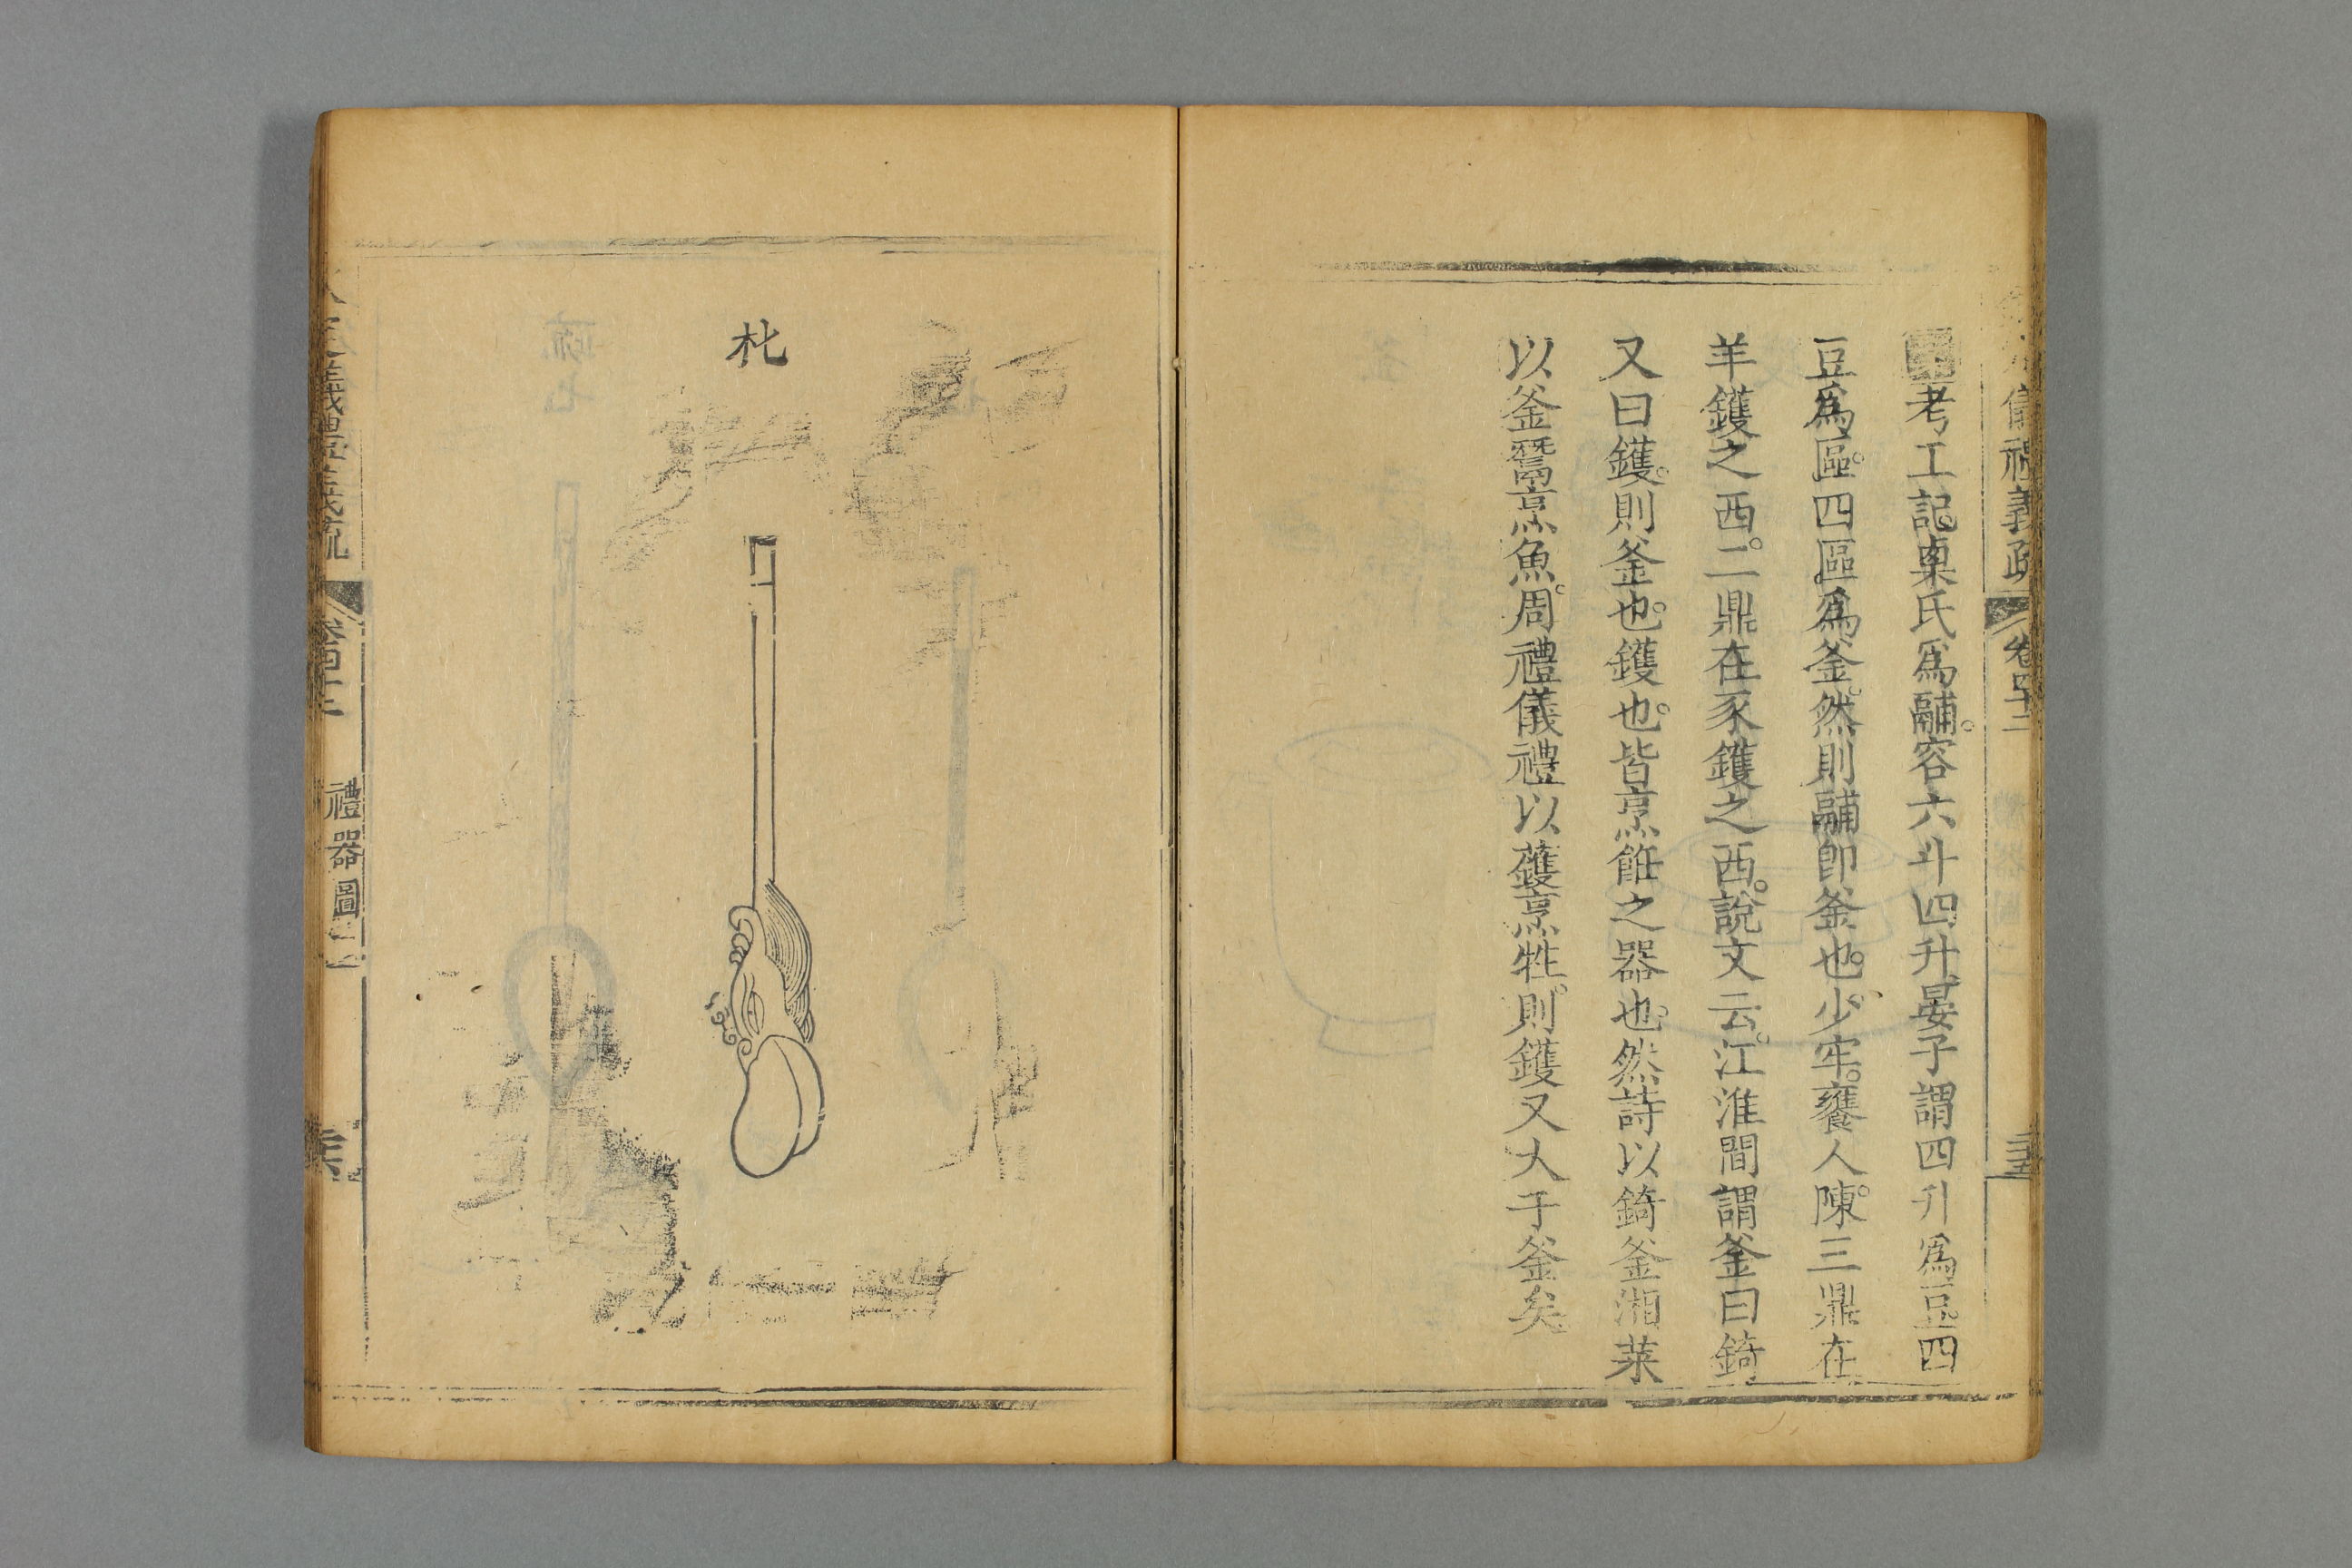 儀禮義疏 卷四十二
考工記㮚氏爲鬴。容六斗四升晏子謂四升爲豆。四
豆爲區。四區爲釜。然則鬴卽釜也。少牢。饔人。陳三鼎在
羊鑊之西。二鼎在豕鑊之西。說文云。江淮間謂釜曰錡
又曰鑊。則釜也。鑊也。皆烹飪之器也。然詩以錡釜湘菜
以釜鬵烹魚。周禮儀禮以鑊烹牲。則鑊又大于釜矣。
朼
儀禮義疏 卷四十二 禮器圖二